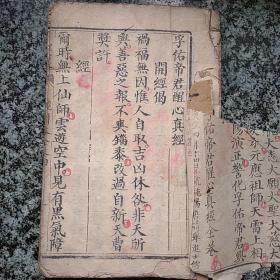 孚佑帝君醒心真經
開經偈
禍福無因惟人自取吉凶休咎非天所
與善惡之報不爽錙黍改過自新天曹
獎許
經
爾時無上仙師雲遊空中見有黑氣障
大願大聖大
元應祖師天雷上相
演正警化孚佑帝君
佑帝君醒心真經全卷